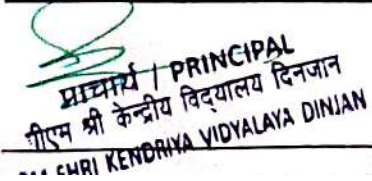 प्राचार्य / PRINCIPAL
पीएम श्री केन्द्रीय विद्यालय दिनजान
SHRI KENDRIYA VIDYALAYA DINJAN